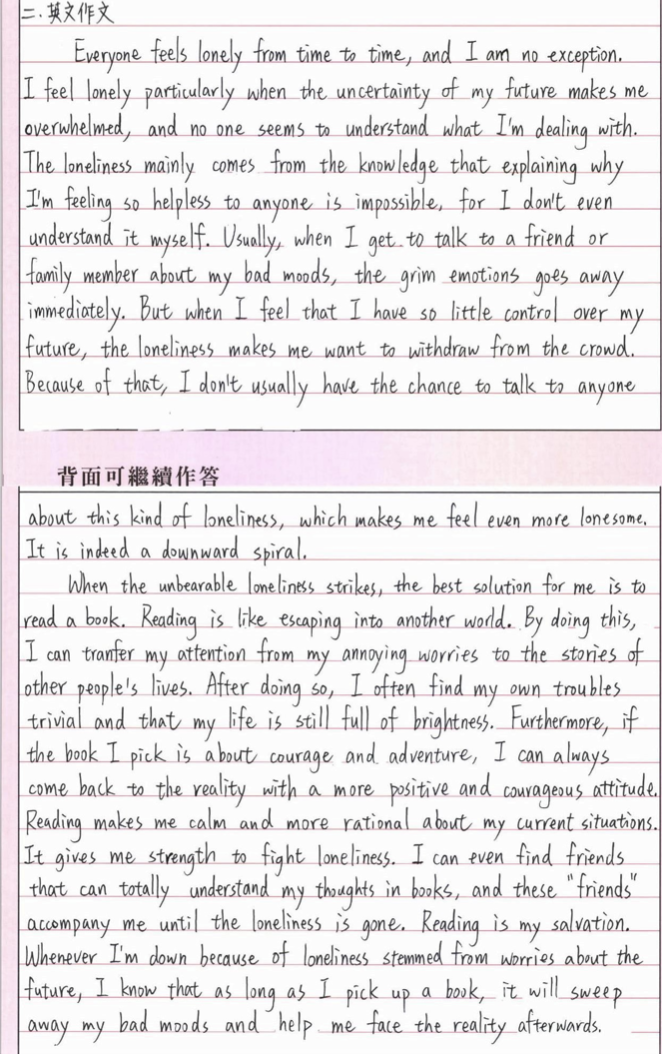 二. 英文作文
Everyone feels lonely from time to time, and I am no exception.
I feel lonely particularly when the uncertainty of my future makes me
overwhelmed, and no one seems to understand what I'm dealing with.
The loneliness mainly comes from the knowledge that explaining why
I'm feeling so helpless to anyone is impossible, for I don't even
understand it myself. Usually, when I get to talk to a friend or
family member about my bad moods, the grim emotions goes away
immediately. But when I feel that I have so little control over my
future, the loneliness makes me want to withdraw from the crowd.
Because of that, I don't usually have the chance to talk to anyone
背面可繼續作答
about this kind of loneliness, which makes me feel even more lonesome.
It is indeed a downward spiral.
When the unbearable loneliness strikes, the best solution for me is to
read a book. Reading is like escaping into another world. By doing this,
I can tranfer my attention from my annoying worries to the stories of
other people's lives. After doing so, I often find my own troubles
trivial and that my life is still full of brightness. Furthermore, if
the book I pick is about courage and adventure, I can always
come back to the reality with a more positive and courageous attitude.
Reading makes me calm and more rational about my current situations.
It gives me strength to fight loneliness. I can even find friends
that can totally understand my thoughts in books, and these "friends"
accompany me until the loneliness is gone. Reading is my salvation.
Whenever I'm down because of loneliness stemmed from worries about the
future, I know that as long as I pick up a book, it will sweep
away my bad moods and help me face the reality afterwards.